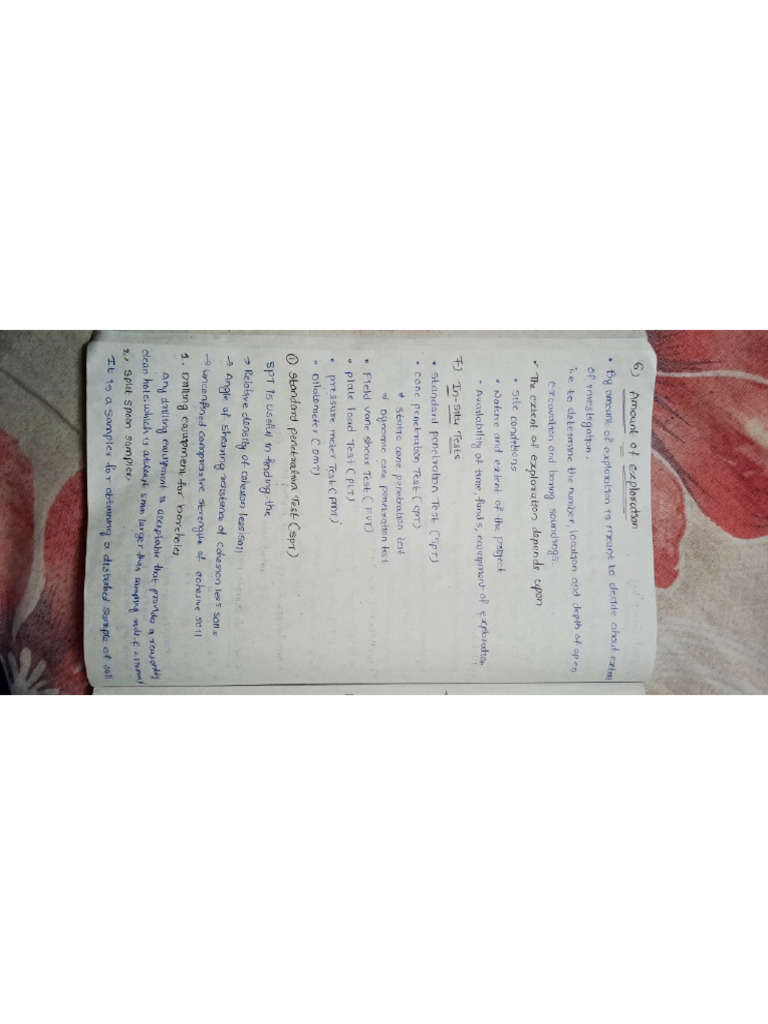 6) Amount of exploration
• By amount of exploration is meant to decide about extent
of investigation.
i.e to determine the number, location and depth of open
excavation and boring soundings.
• The extent of exploration depends upon
• Site conditions
• Nature and extent of the project
• Availability of time, funds, equipment of exploration
7) In-situ Tests
• Standard penetration Test (SPT)
• cone penetration Test (CPT)
* static cone penetration test
* Dynamic cone penetration test
• Field vane shear Test (FVT)
• plate load Test (PLT)
• pressure meter Test (PMT)
• Dilatometer (DMT)
① Standard penetration Test (SPT)
SPT is useful in finding the
→ Relative density of cohesion less soil
→ Angle of shearing resistance of cohesion less soils
→ unconfined compressive strength of cohesive soil
1. Drilling equipment for boreholes
any drilling equipment is acceptable that provides a reasonably
clean hole, which is atleast 5mm larger than sampling rods &
2. split spoon sampler.
It is a sampler for obtaining a disturbed sample of soil